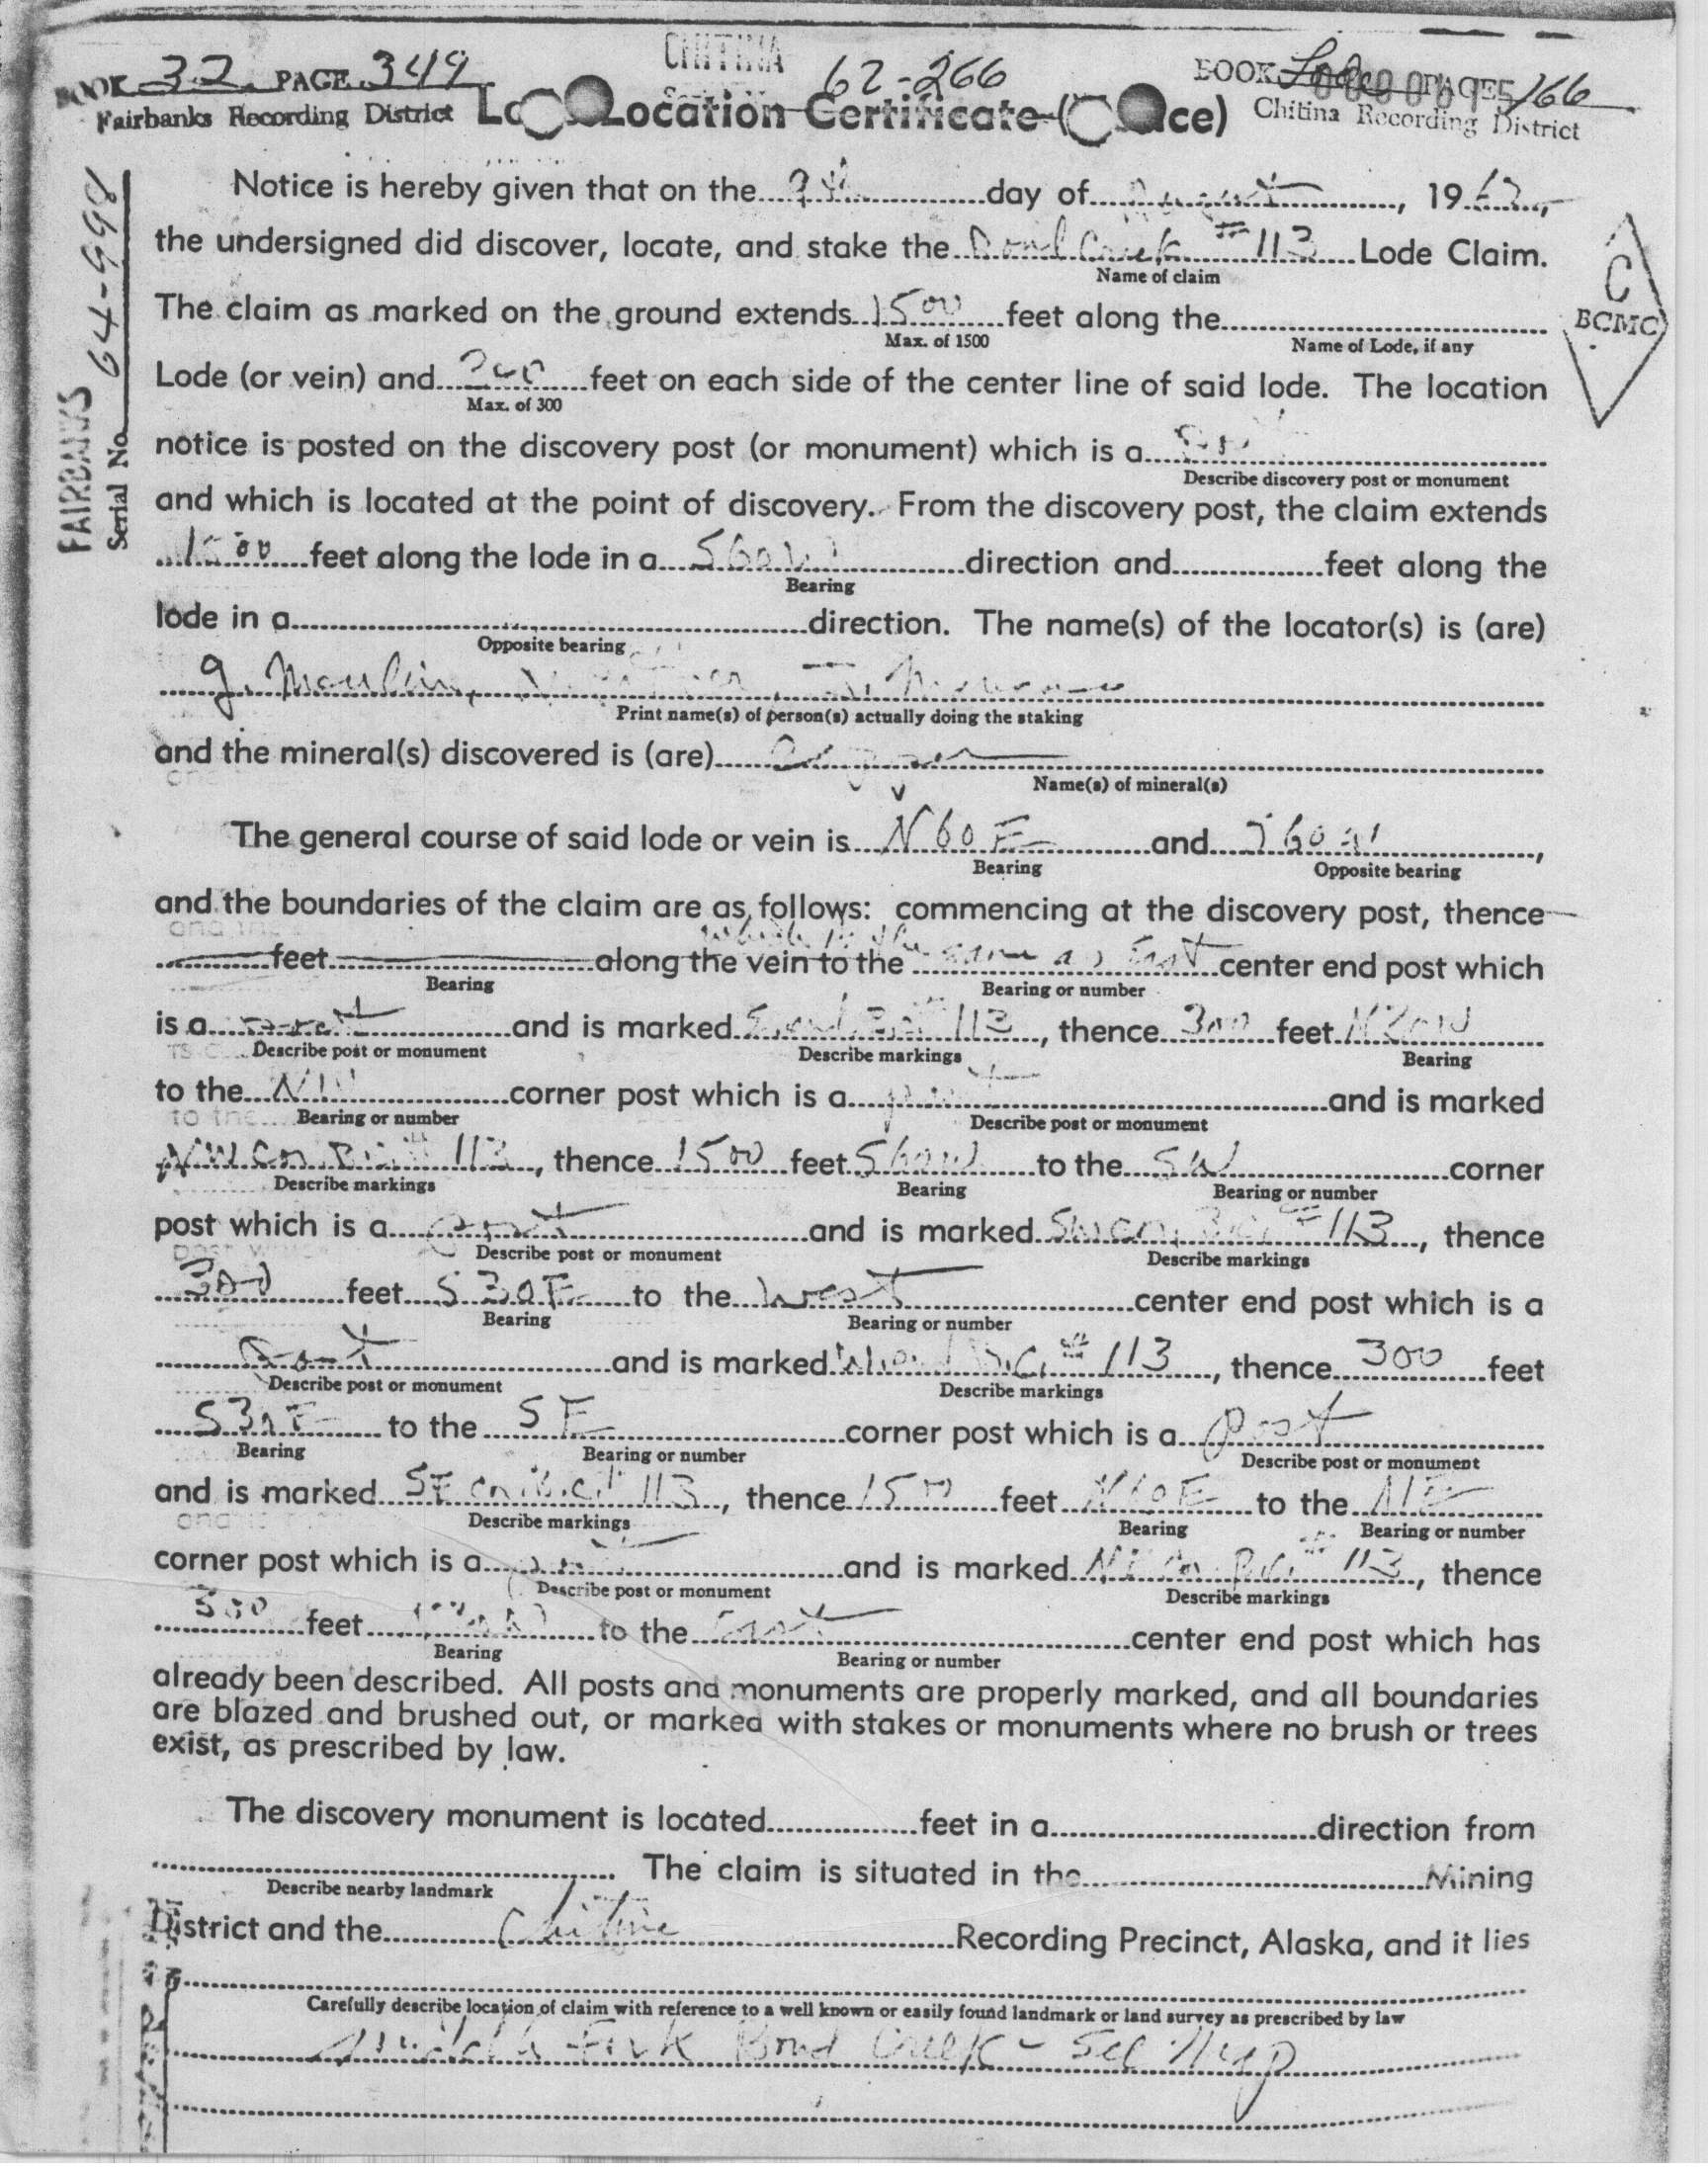 CHITINA
BOOK 32 PAGE 349
62-266
BOOK Lode PAGE 166
Fairbanks Recording District
Location Certificate
Chitina Recording District
FAIRBANKS
Serial No. 64-998
C
BCMC
Notice is hereby given that on the 9th day of August, 19
the undersigned did discover, locate, and stake the Bond Creek #113 Lode Claim.
Name of claim
The claim as marked on the ground extends 1500 feet along the
Max. of 1500 Name of Lode, if any
Lode (or vein) and feet on each side of the center line of said lode. The location
Max. of 300
notice is posted on the discovery post (or monument) which is a
Describe discovery post or monument
and which is located at the point of discovery. From the discovery post, the claim extends
1500 feet along the lode in a S60W direction and feet along the
Bearing
lode in a direction. The name(s) of the locator(s) is (are)
Opposite bearing
J. Moulin,
Print name(s) of person(s) actually doing the staking
and the mineral(s) discovered is (are) Copper
Name(s) of mineral(s)
The general course of said lode or vein is N60E and S60W,
Bearing Opposite bearing
and the boundaries of the claim are as follows: commencing at the discovery post, thence
which is the
feet along the vein to the same as East center end post which
Bearing Bearing or number
is a post and is marked 113, thence 300 feet N30W
Describe post or monument Describe markings Bearing
to the NW corner post which is a post and is marked
Bearing or number Describe post or monument
NW Cor 113, thence 1500 feet S60W to the SW corner
Describe markings Bearing Bearing or number
post which is a post and is marked SW Cor B.C. #113, thence
Describe post or monument Describe markings
300 feet S30E to the West center end post which is a
Bearing Bearing or number
post and is marked B.C. #113, thence 300 feet
Describe post or monument Describe markings
S30E to the SE corner post which is a post
Bearing Bearing or number Describe post or monument
and is marked SE Cor B.C. #113, thence 1500 feet N60E to the NE
Describe markings Bearing Bearing or number
corner post which is a post and is marked NE Cor B.C. #113, thence
Describe post or monument Describe markings
300 feet to the East center end post which has
Bearing Bearing or number
already been described. All posts and monuments are properly marked, and all boundaries
are blazed and brushed out, or marked with stakes or monuments where no brush or trees
exist, as prescribed by law.
The discovery monument is located feet in a direction from
. The claim is situated in the Mining
Describe nearby landmark
District and the Chitina Recording Precinct, Alaska, and it lies
Carefully describe location of claim with reference to a well known or easily found landmark or land survey as prescribed by law
Middle Fork Bond Creek - See Map